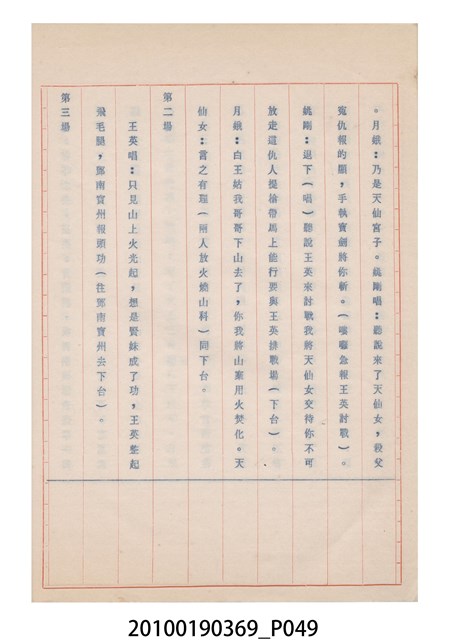 。月娥：乃是天仙宮子。姚剛唱：聽說來了天仙女，殺父
冤仇報的願，手執寶劍將你斬。（嘍囉急報王英討戰）。
姚剛：退下（唱）聽說王英來討戰我將天仙女交待你不可
放走這仇人提槍帶馬上能行要與王英排戰場（下台）。
月娥：白王姑我哥哥下山去了，你我將山寨用火焚化。天
仙女：言之有理（兩人放火燒山科）同下台。
第二場
王英唱：只見山上火光起，想是賢妹成了功，王英整起
飛毛腿，鄭南寶州報頭功（往鄭南寶州去下台）。
第三場
20100190369_P049